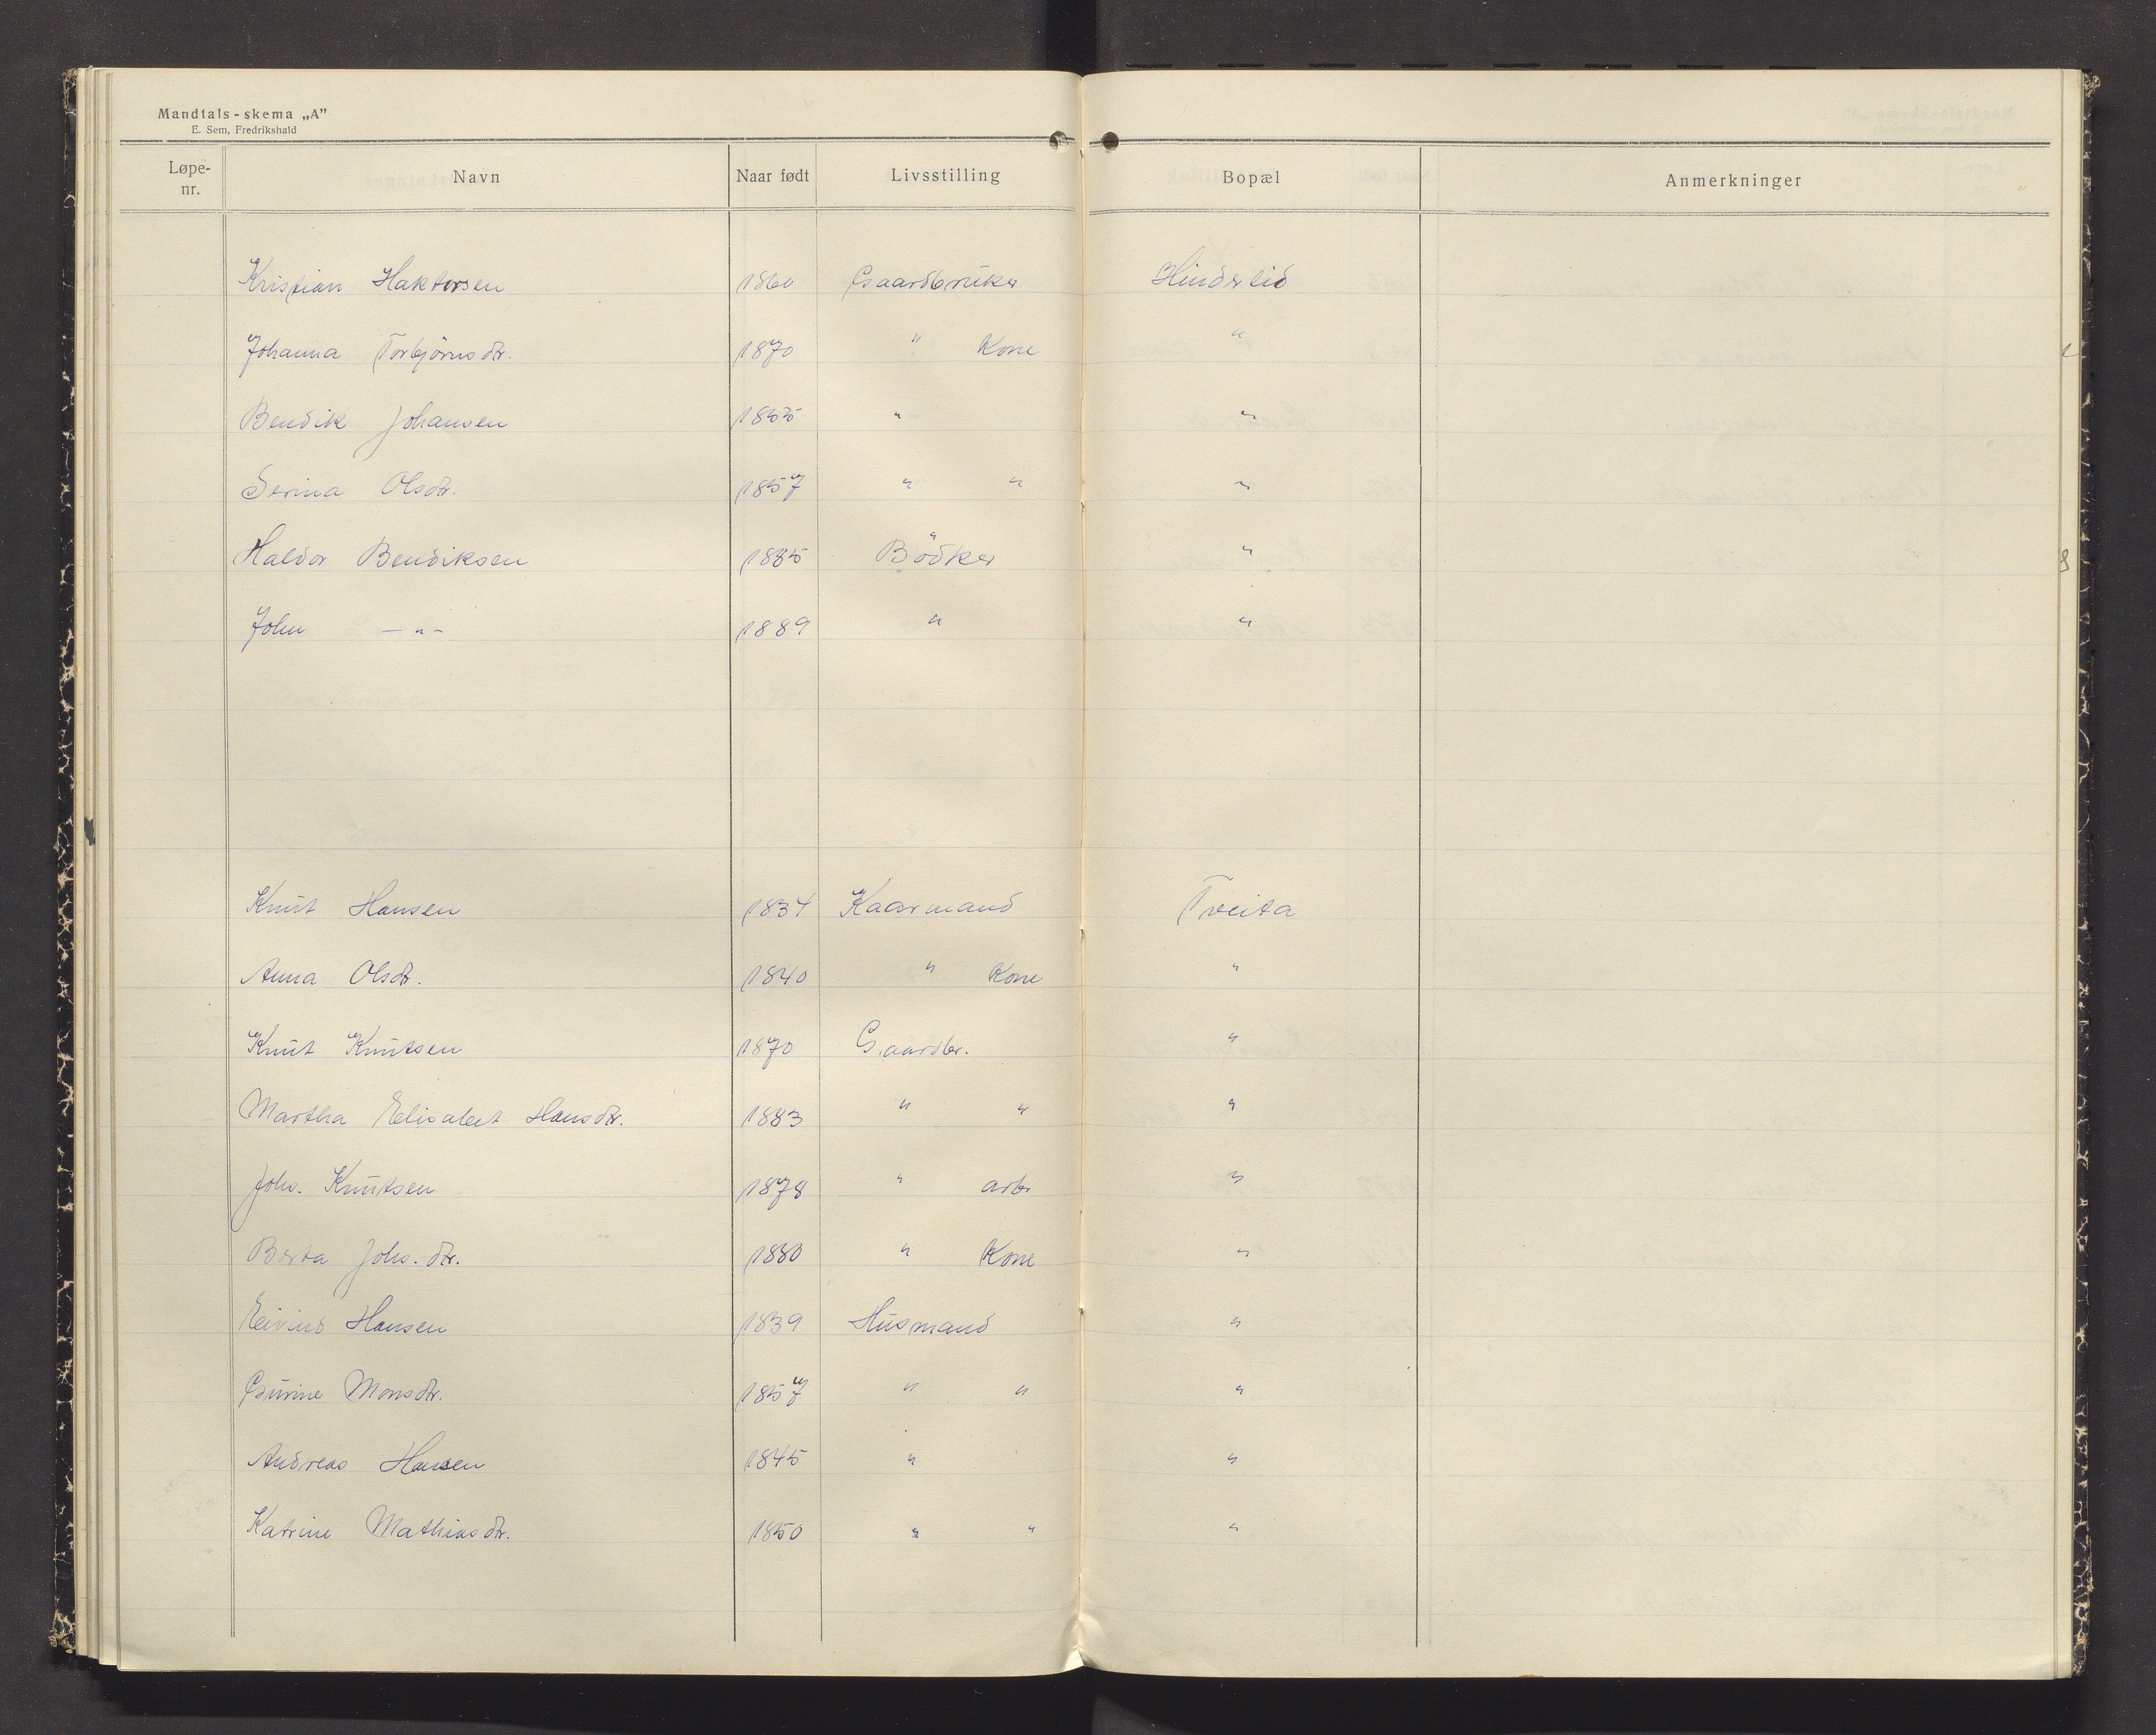 Mandtals-skema „A”
E. Sem, Fredrikshald
Løpe-nr. Navn Naar født Livsstilling Bopæl Anmerkninger
Kristian Haktorsen 1860 Gaardbruker Hinderlid
Johanna Torbjörnsdtr. 1870 " Kone "
Bendik Johansen 1855 " "
Serina Olsdtr. 1857 " " "
Haldor Bendiksen 1885 Bödker "
John -"- 1889 " "
Knut Hansen 1834 Kaarmand Tveita
Anna Olsdtr. 1840 " Kone "
Knut Knutsen 1870 Gaardbr. "
Martha Elisabet Hansdtr. 1883 " " "
Johs. Knutsen 1878 " arb "
Berta Johs.dtr. 1880 " Kone "
Eivind Hansen 1839 Husmand "
Gurine Monsdtr. 1857 " " "
Andreas Hansen 1845 " "
Katrine Mathiasdtr. 1850 " " "